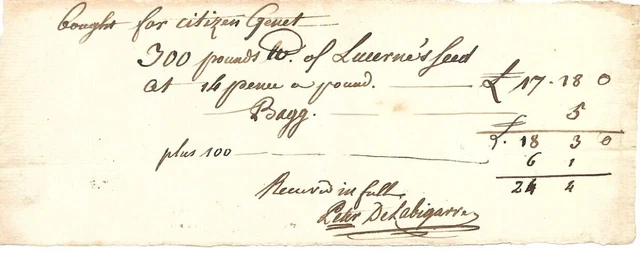 bought for citizen Genet
300 pounds Wt. of Lucerne's seed
at 14 pence a pound. £ 17-18 0
Bagg. 5
£. 18 3 0
plus 100 6 1
24 4
Received in full
Peter DeLabigarre